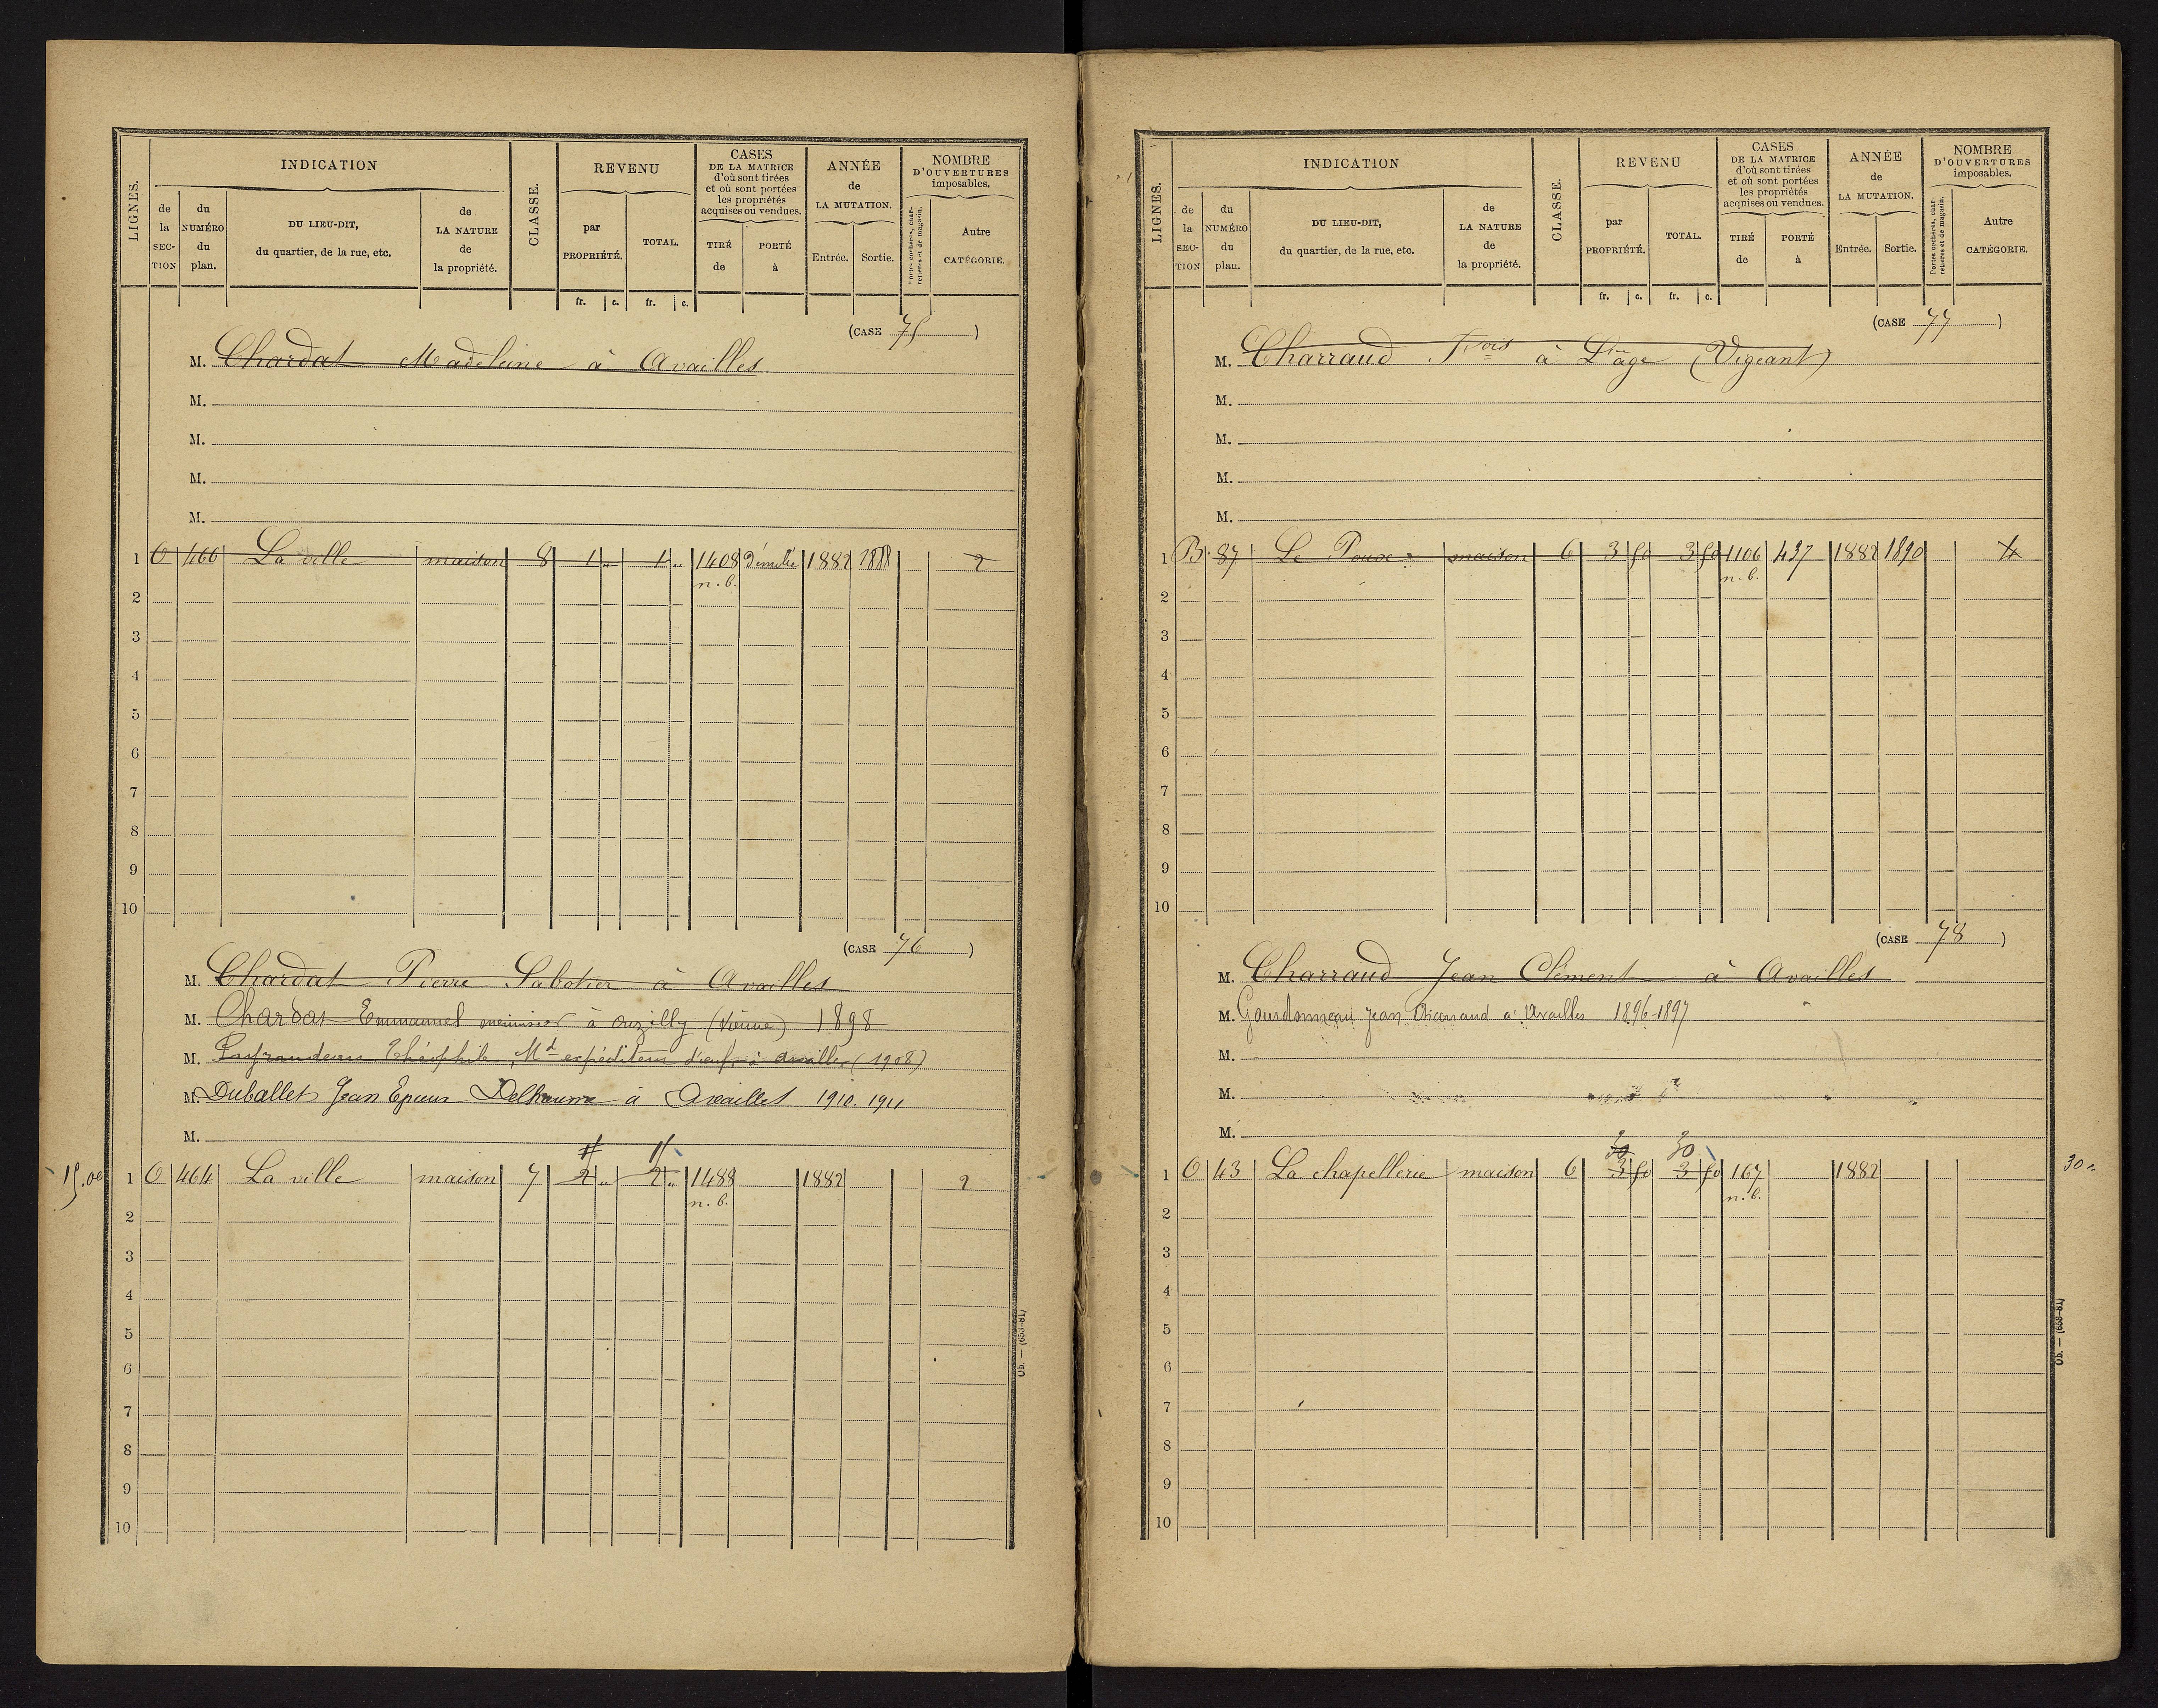 LIGNES.
INDICATION
CLASSE.
REVENU
CASES
DE LA MATRICE
d'où sont tirées
et où sont portées
les propriétés
acquises ou vendues.
ANNÉE
de
LA MUTATION.
NOMBRE
D'OUVERTURES
imposables.
de
la
SEC-
TION
du
NUMÉRO
du
plan.
DU LIEU-DIT,
du quartier, de la rue, etc.
de
LA NATURE
de
la propriété.
par
PROPRIÉTÉ.
TOTAL.
TIRÉ
de
PORTÉ
à
Entrée.
Sortie.
Portes cochères, char-
retières et de magasin.
Autre
CATÉGORIE.
fr. c. fr. c.
(CASE 75)
M. Chardat Madeleine à Availles
M.
M.
M.
M.
1 O 466 La ville maison 8 1 " 1 " 1408 Démolie 1882 1888 2
n. b.
2
3
4
5
6
7
8
9
10
(CASE 76)
M. Chardat Pierre Sabotier à Availles
M. Chardat Emmanuel menuisier à Ouzilly (Vienne) 1898
M. Théophile, Md expéditeur d'œufs à Availles (1908)
M. Duballet Jean Epoux Delhaume à Availles 1910. 1911
M.
15.00
1 O 464 La ville maison 7 2 " 2 " 1488 1882 2
n. b.
2
3
4
5
6
7
8
9
10
Ob. — (658-81)
LIGNES.
INDICATION
CLASSE.
REVENU
CASES
DE LA MATRICE
d'où sont tirées
et où sont portées
les propriétés
acquises ou vendues.
ANNÉE
de
LA MUTATION.
NOMBRE
D'OUVERTURES
imposables.
de
la
SEC-
TION
du
NUMÉRO
du
plan.
DU LIEU-DIT,
du quartier, de la rue, etc.
de
LA NATURE
de
la propriété.
par
PROPRIÉTÉ.
TOTAL.
TIRÉ
de
PORTÉ
à
Entrée.
Sortie.
Portes cochères, char-
retières et de magasin.
Autre
CATÉGORIE.
fr. c. fr. c.
(CASE 77)
M. Charraud Fois à L'age (Vigeant)
M.
M.
M.
M.
1 B. 87 Le maison 6 3 50 3 50 1106 437 1882 1890
n. b.
2
3
4
5
6
7
8
9
10
(CASE 78)
M. Charraud Jean Clément à Availles
M. Gourdonneau Jean Charraud à Availles 1896-1897
M.
M.
M.
30 30
1 O 43 La chapellerie maison 6 3 50 3 50 167 1882
n. b.
30 "
2
3
4
5
6
7
8
9
10
Ob. — (658-81)